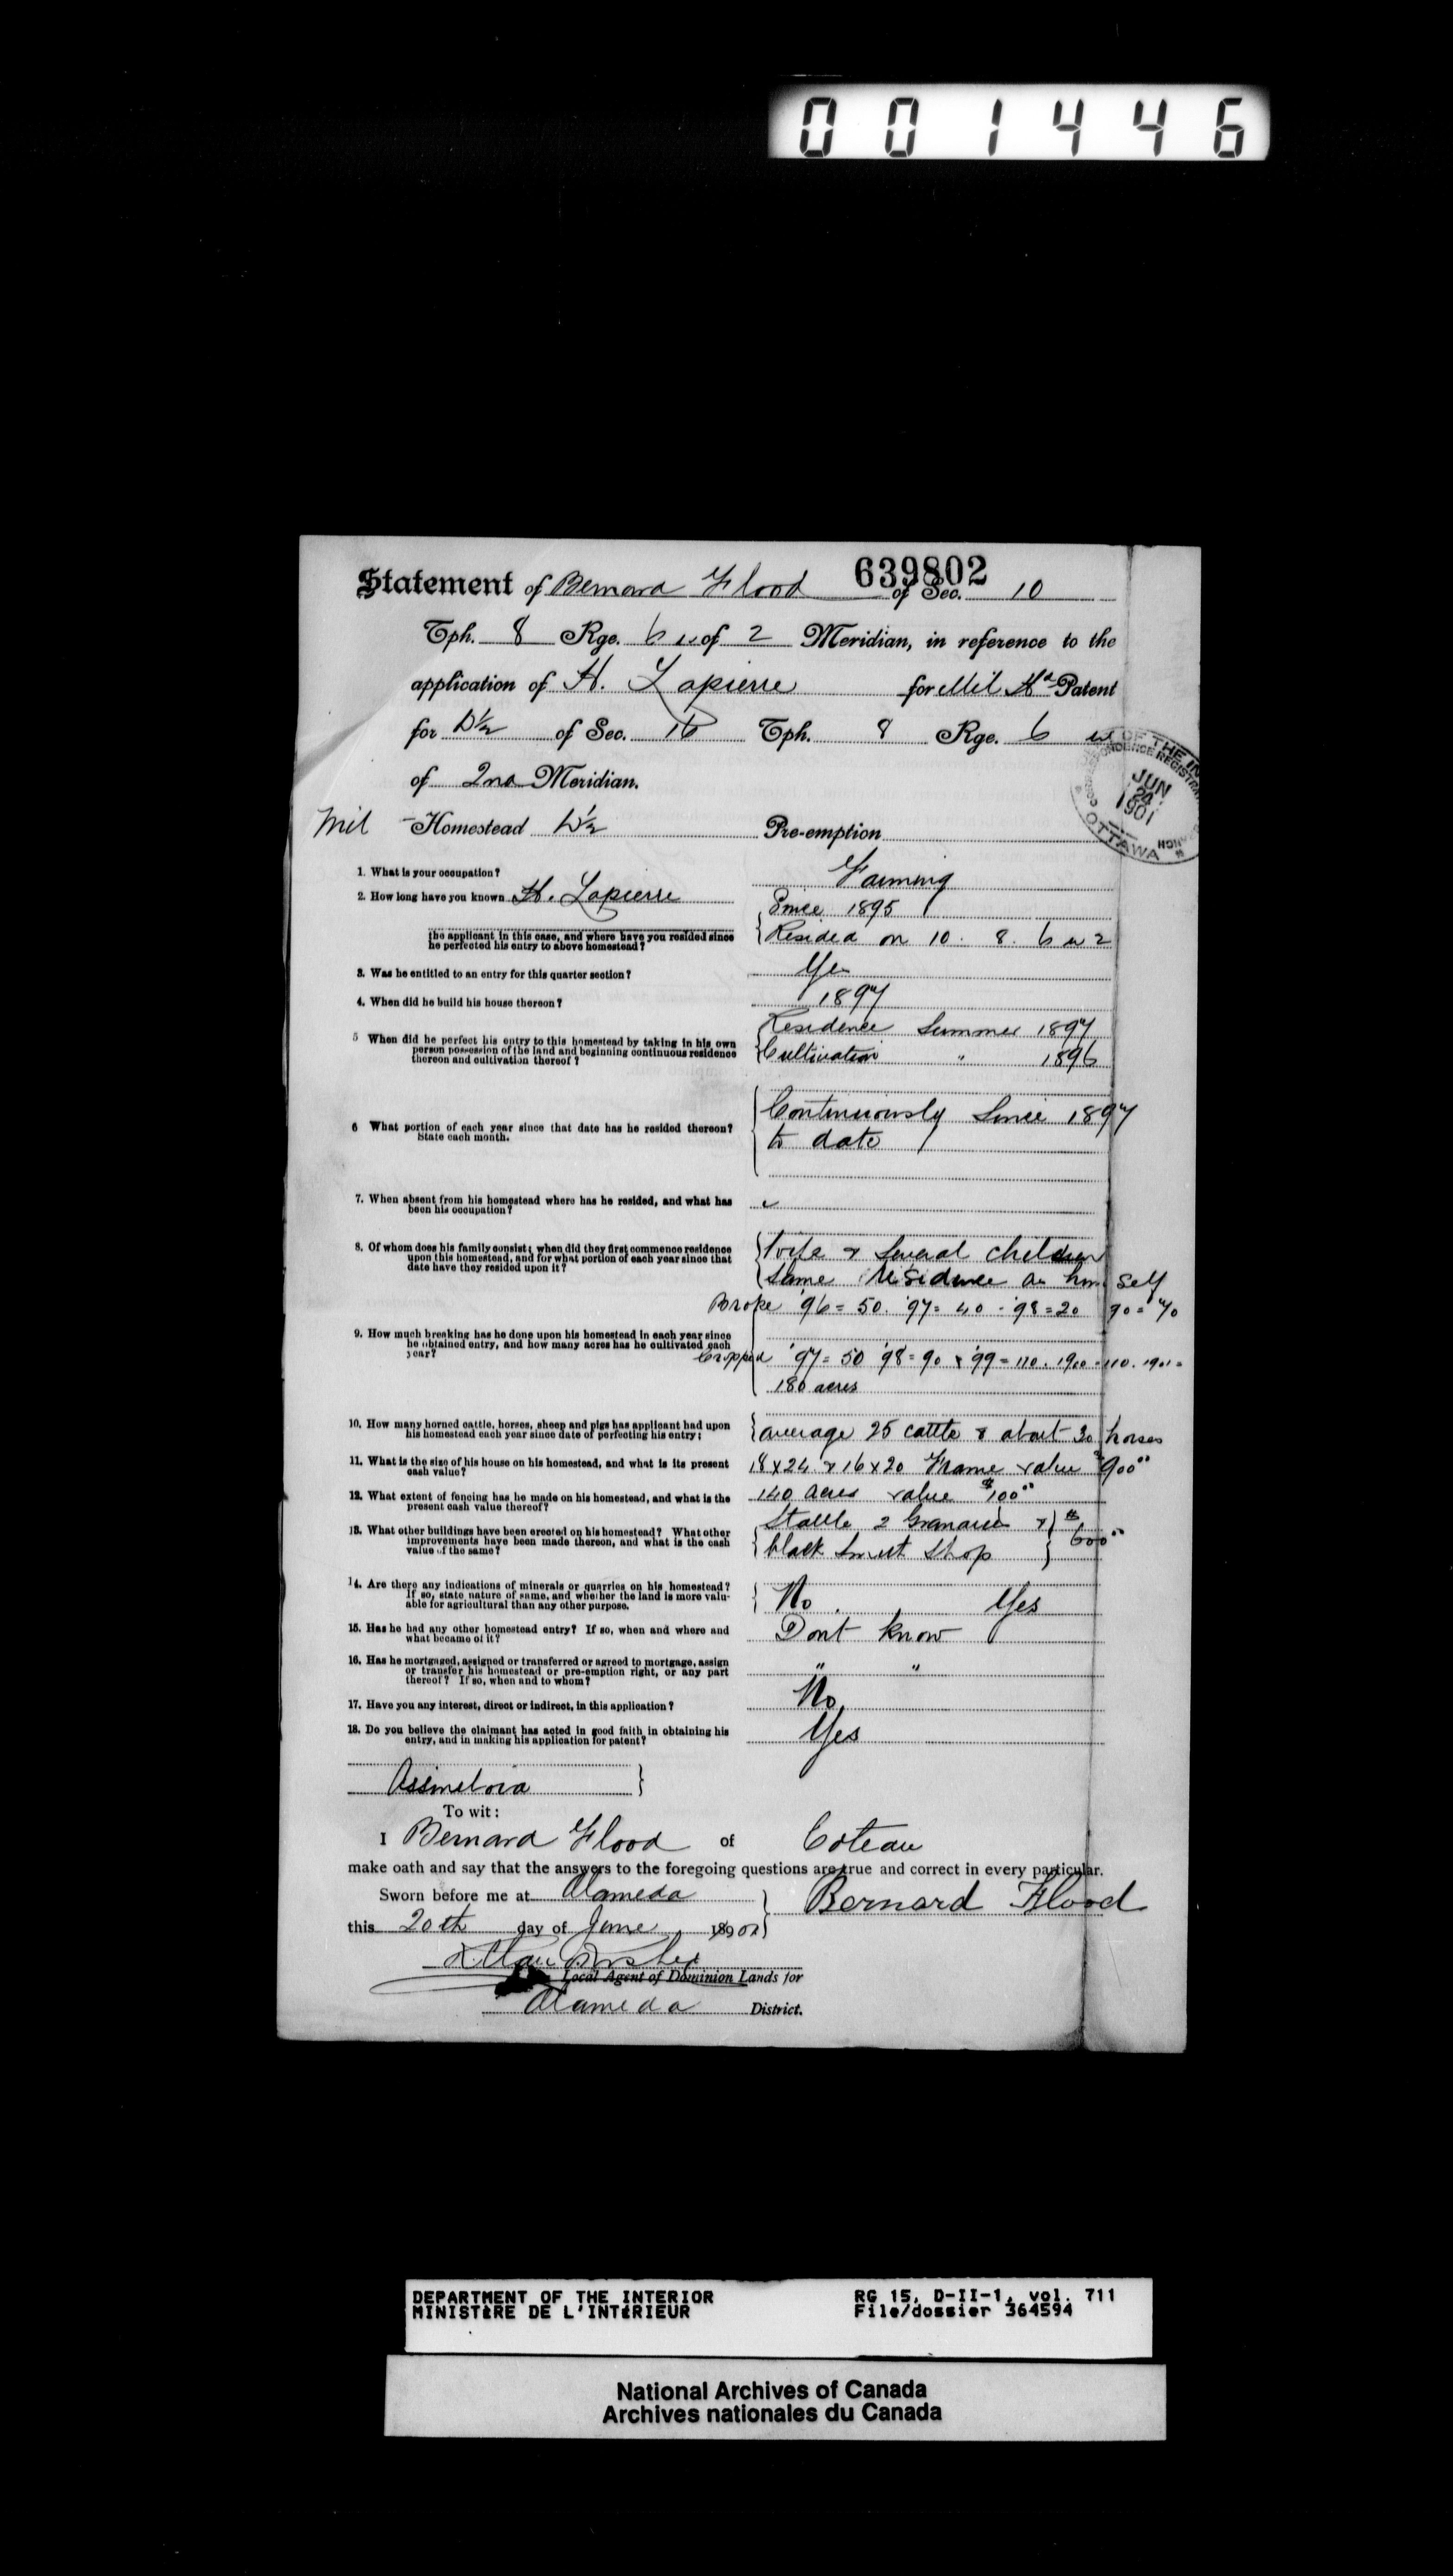 001446
639802
Statement of Bernard Flood of Sec. 10
Tph. 8 Rge. 6 w of 2 Meridian, in reference to the
application of H. Lapierre for Mil Hd Patent
for of Sec. 16 Tph. 8 Rge. 6 w
of 2nd Meridian.
OF THE IN
CORRESPONDENCE REGISTRATION
JUN
24
1901
OTTAWA
Mil Homestead Pre-emption
1. What is your occupation? Farming
2. How long have you known H. Lapierre Since 1895
the applicant in this case, and where have you resided since Resided on 10. 8. 6 w 2
he perfected his entry to above homestead?
3. Was he entitled to an entry for this quarter section? Yes
4. When did he build his house thereon? 1897
5 When did he perfect his entry to this homestead by taking in his own Residence Summer 1897
person possession of the land and beginning continuous residence Cultivation " 1896
thereon and cultivation thereof?
6 What portion of each year since that date has he resided thereon? Continuously Since 1897
State each month. to date
7. When absent from his homestead where has he resided, and what has
been his occupation?
8. Of whom does his family consist; when did they first commence residence Wife & Several children
upon this homestead, and for what portion of each year since that Same residence as him self
date have they resided upon it?
Broke '96 = 50. '97 = 40 - '98 = 20 90 = 70
9. How much breaking has he done upon his homestead in each year since
he obtained entry, and how many acres has he cultivated each
year? Cropped '97 = 50 '98 = 90 & '99 = 110. 1900 = 110. 1901 =
180 acres
10. How many horned cattle, horses, sheep and pigs has applicant had upon average 25 cattle & about 30 horses
his homestead each year since date of perfecting his entry;
11. What is the size of his house on his homestead, and what is its present 18 x 24 & 16 x 20 Frame value $900"
cash value?
12. What extent of fencing has he made on his homestead, and what is the 140 acres value $100"
present cash value thereof?
13. What other buildings have been erected on his homestead? What other Stable 2 Granaries & } $600"
improvements have been made thereon, and what is the cash black Smith Shop
value of the same?
14. Are there any indications of minerals or quarries on his homestead? No. Yes
If so, state nature of same, and whether the land is more valu-
able for agricultural than any other purpose.
15. Has he had any other homestead entry? If so, when and where and Dont know
what became of it?
16. Has he mortgaged, assigned or transferred or agreed to mortgage, assign " "
or transfer his homestead or pre-emption right, or any part
thereof? If so, when and to whom?
17. Have you any interest, direct or indirect, in this application? No
18. Do you believe the claimant has acted in good faith in obtaining his Yes
entry, and in making his application for patent?
Assiniboia }
To wit:
I Bernard Flood of Coteau
make oath and say that the answers to the foregoing questions are true and correct in every particular.
Sworn before me at Alameda } Bernard Flood
this 20th day of June 1901
Local Agent of Dominion Lands for
Alameda District.
DEPARTMENT OF THE INTERIOR RG 15, D-II-1, vol. 711
MINISTÈRE DE L'INTÉRIEUR File/dossier 364594
National Archives of Canada
Archives nationales du Canada